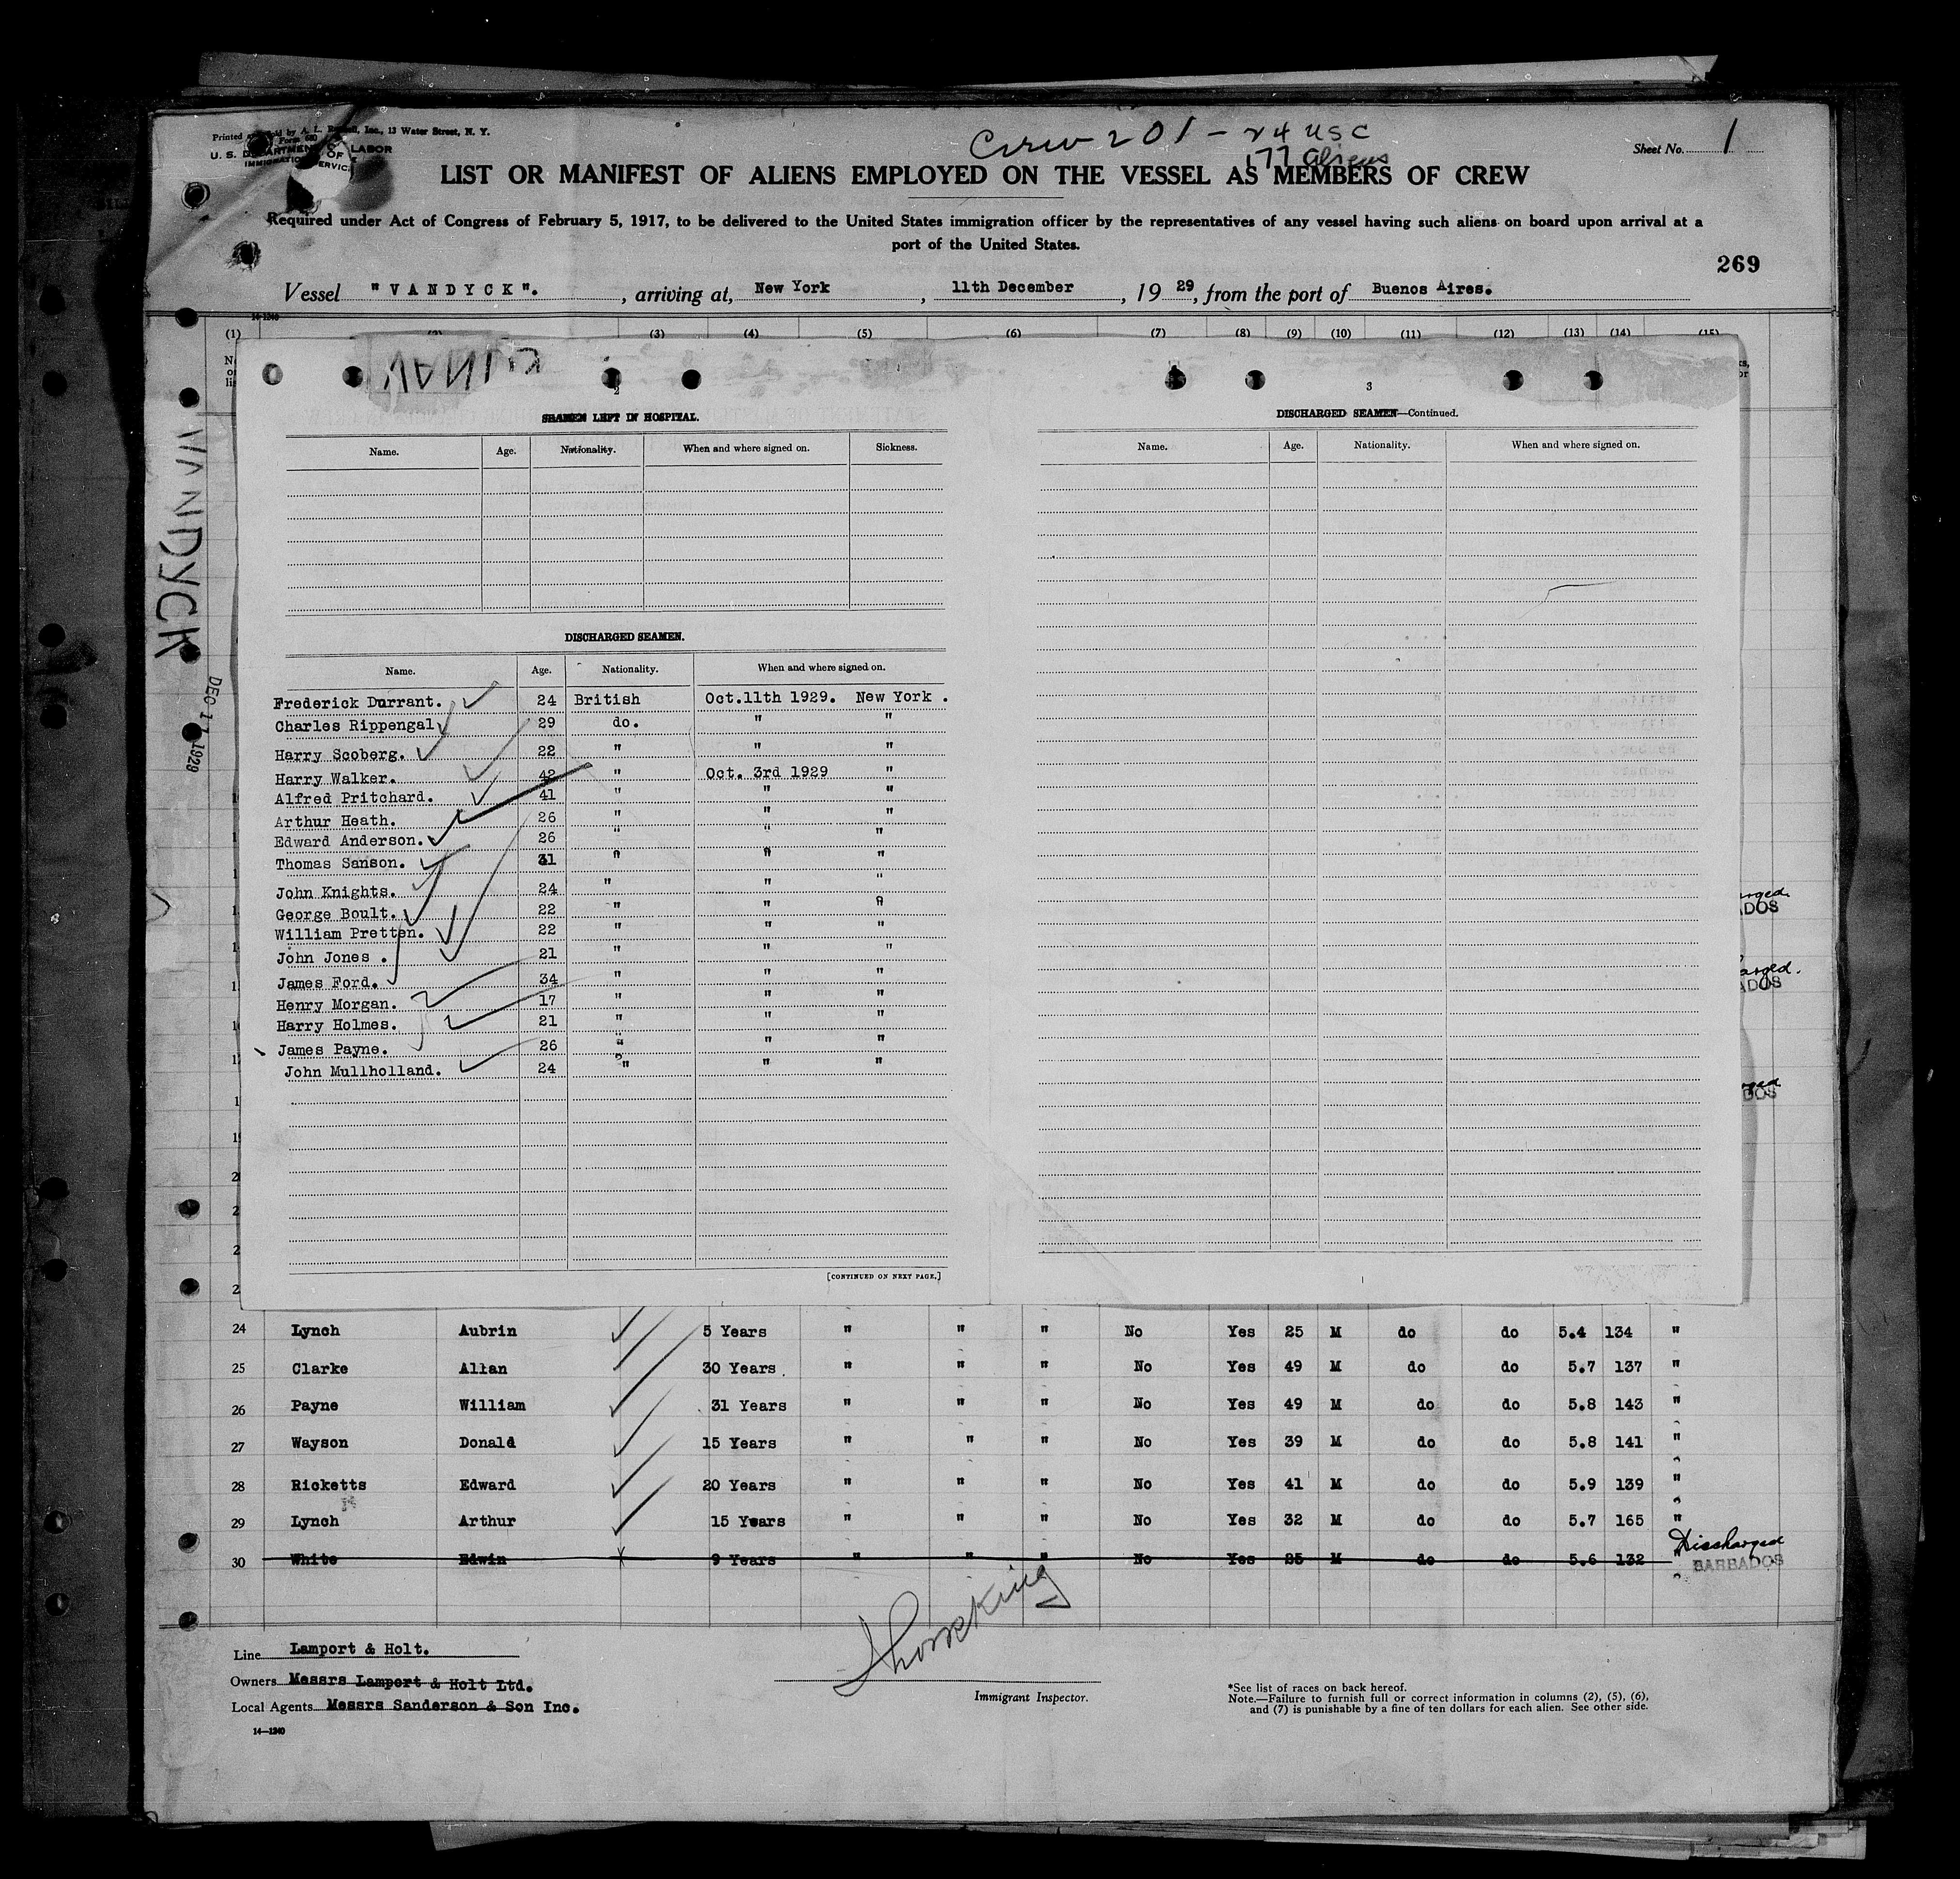 Printed and sold by A. L. Russell, Inc., 13 Water Street, N. Y.
Form 680
U. S. DEPARTMENT OF LABOR
IMMIGRATION SERVICE
Crew 201 - 24 USC
177 Aliens
Sheet No. 1
LIST OR MANIFEST OF ALIENS EMPLOYED ON THE VESSEL AS MEMBERS OF CREW
Required under Act of Congress of February 5, 1917, to be delivered to the United States immigration officer by the representatives of any vessel having such aliens on board upon arrival at a
port of the United States.
269
Vessel "VANDYCK". , arriving at, New York , 11th December , 19 29, from the port of Buenos Aires.
14-1240
(1) (2) (3) (4) (5) (6) (7) (8) (9) (10) (11) (12) (13) (14) (15)
VANDYCK
DEC 11 1929
2
SEAMEN LEFT IN HOSPITAL.
Name. Age. Nationality. When and where signed on. Sickness.
DISCHARGED SEAMEN.
Name. Age. Nationality. When and where signed on.
Frederick Durrant. 24 British Oct.11th 1929. New York .
Charles Rippengal 29 do. " "
Harry Scoberg. 22 " " "
Harry Walker. 42 " Oct. 3rd 1929 "
Alfred Pritchard. 41 " " "
Arthur Heath. 26 " " "
Edward Anderson. 26 " " "
Thomas Sanson. 31 " " "
John Knights. 24 " " "
George Boult. 22 " " "
William Pretten. 22 " " "
John Jones . 21 " " "
James Ford. 34 " " "
Henry Morgan. 17 " " "
Harry Holmes. 21 " " "
James Payne. 26 " " "
John Mullholland. 24 " " "
[CONTINUED ON NEXT PAGE.]
3
DISCHARGED SEAMEN—Continued.
Name. Age. Nationality. When and where signed on.
24 Lynch Aubrin 5 Years " " " No Yes 25 M do do 5.4 134 "
25 Clarke Allan 30 Years " " " No Yes 49 M do do 5.7 137 "
26 Payne William 31 Years " " " No Yes 49 M do do 5.8 143 "
27 Wayson Donald 15 Years " " " No Yes 39 M do do 5.8 141 "
28 Ricketts Edward 20 Years " " " No Yes 41 M do do 5.9 139 "
29 Lynch Arthur 15 Years " " " No Yes 32 M do do 5.7 165 "
30 White Edwin 9 Years " " " No Yes 25 M do do 5.6 132 " Discharged
BARBADOS
Line Lamport & Holt.
Owners Messrs Lamport & Holt Ltd.
Local Agents Messrs Sanderson & Son Inc.
14—1240
Immigrant Inspector.
*See list of races on back hereof.
Note.—Failure to furnish full or correct information in columns (2), (5), (6),
and (7) is punishable by a fine of ten dollars for each alien. See other side.